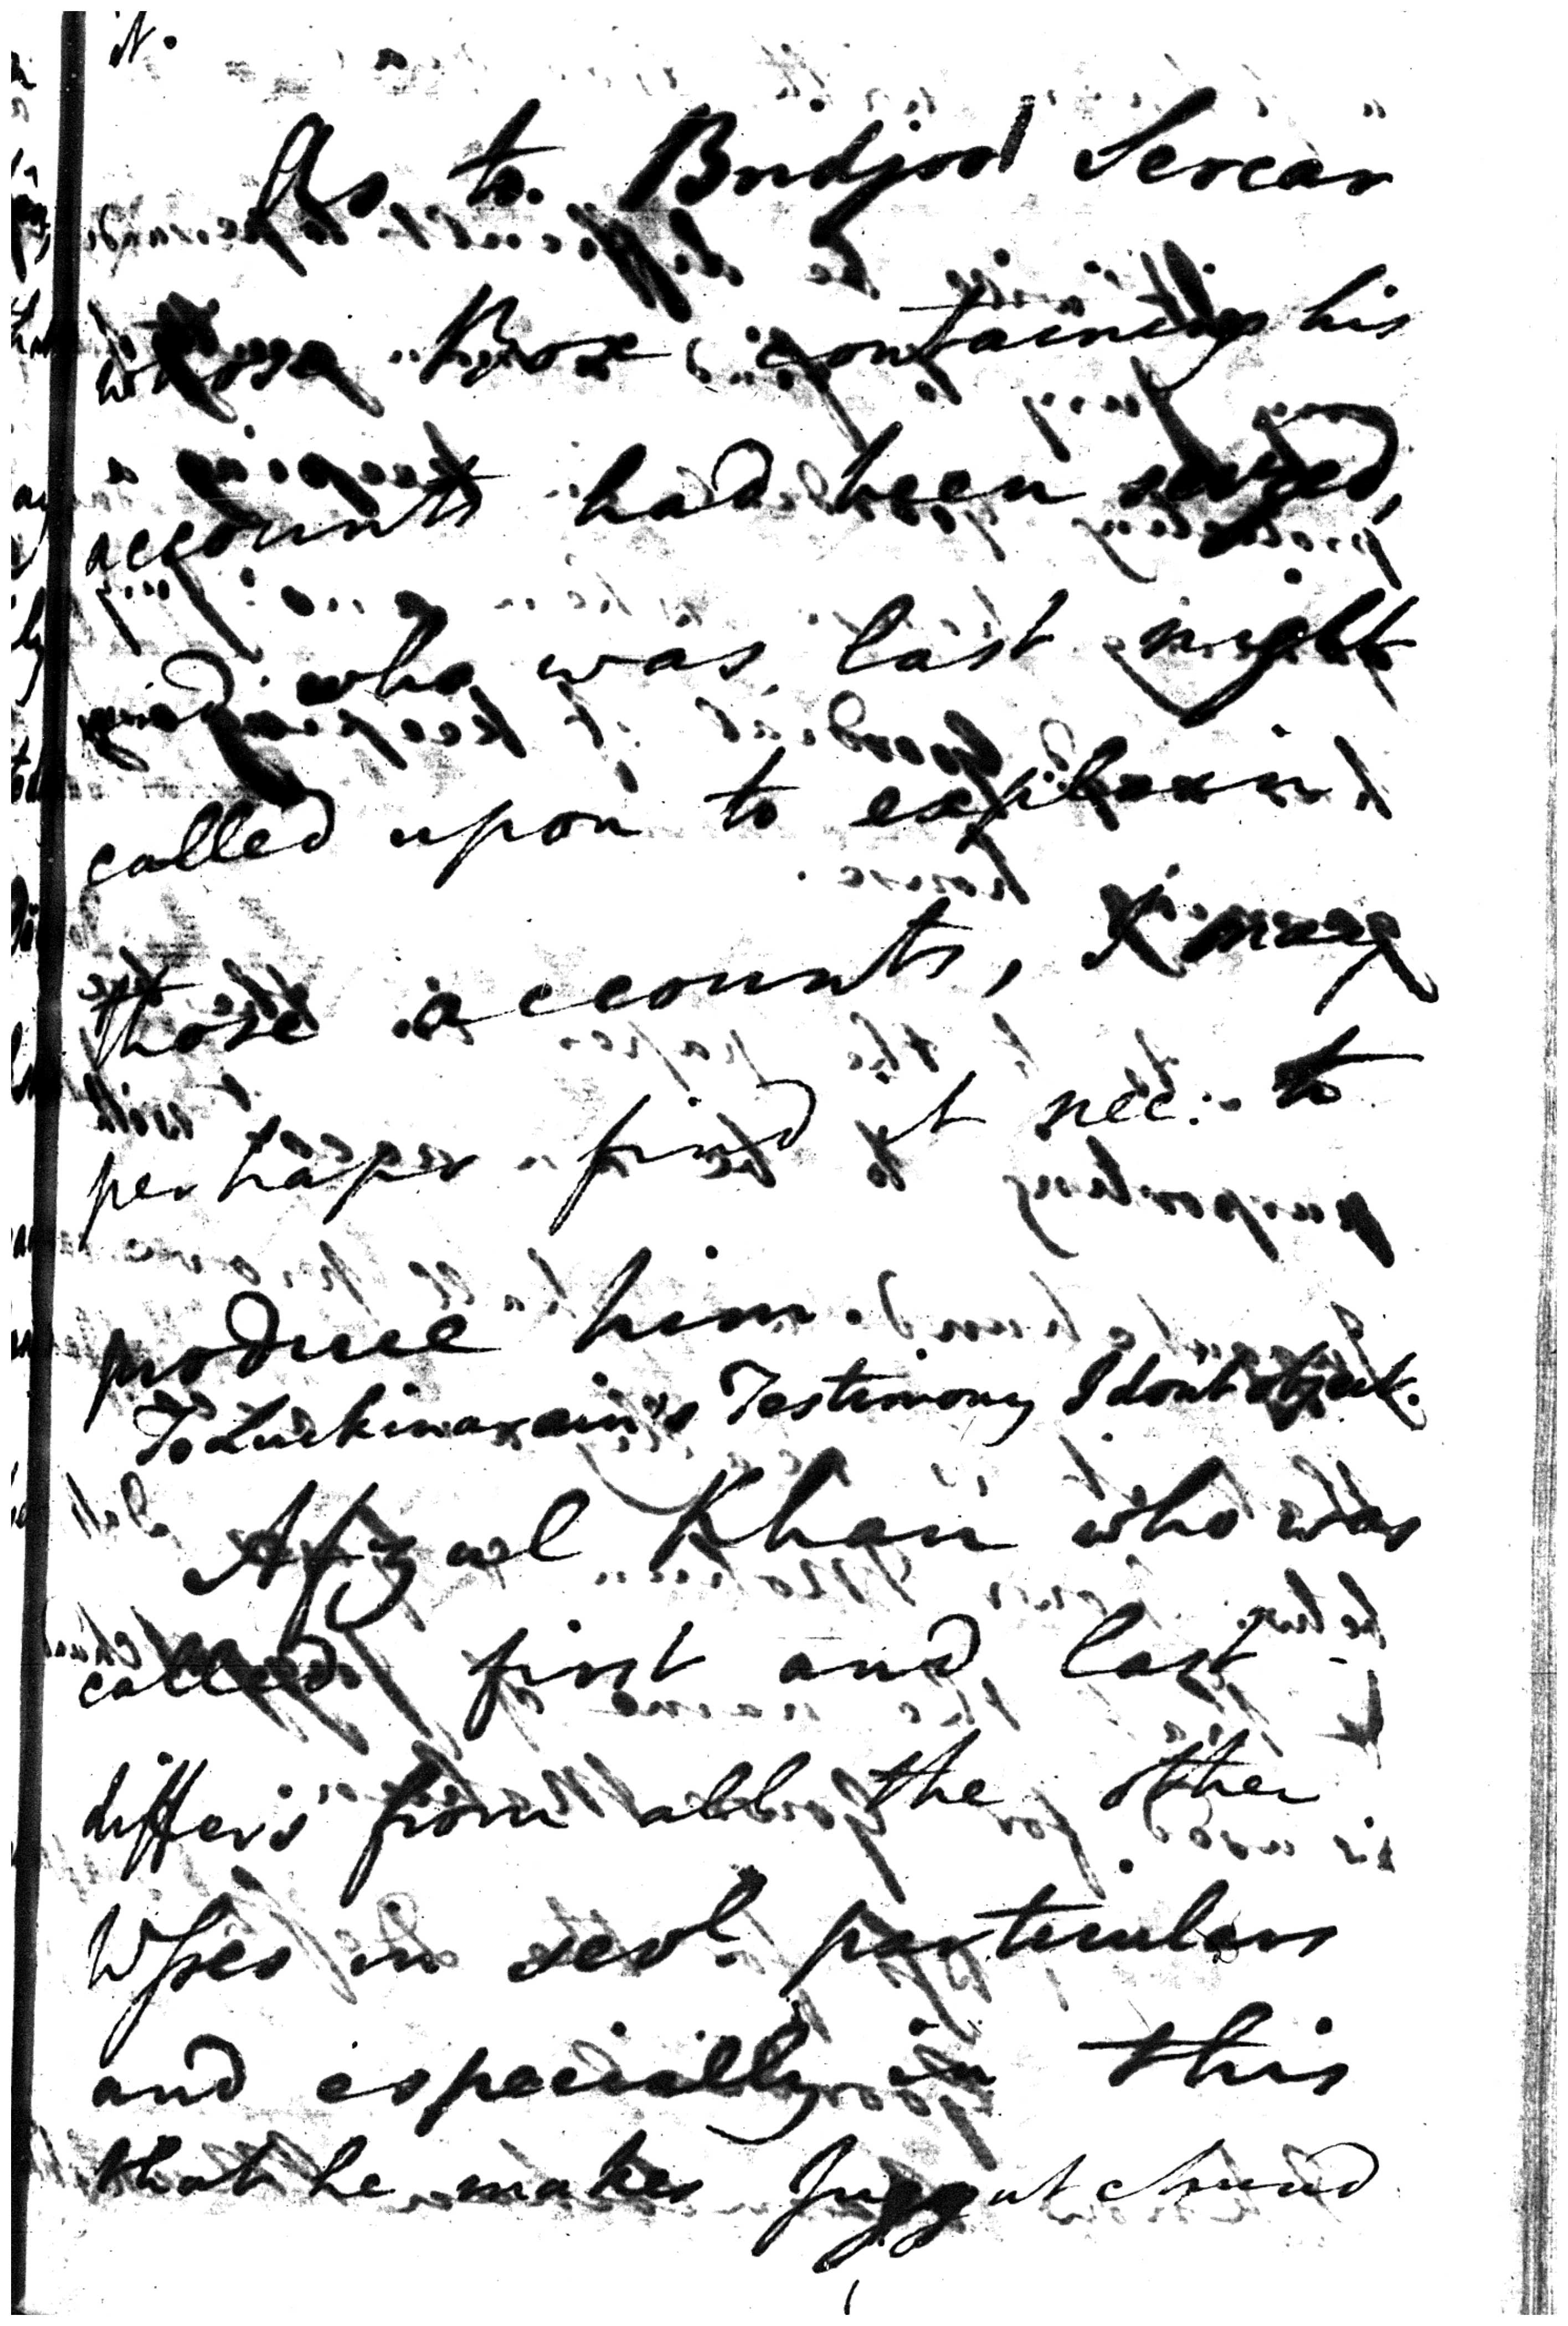 it.
As to Budjoo Sercar
whose Box containing his
accounts had been seized,
and who was last night
called upon to explain
those accounts, I may
perhaps find it nec: to
produce him.
To Luckinarain's Testimony I dont object.
Afzal Khan who was
called first and last
differs from all the other
Wsses in sevl particulars
and especially in this
that he makes Juggut chund